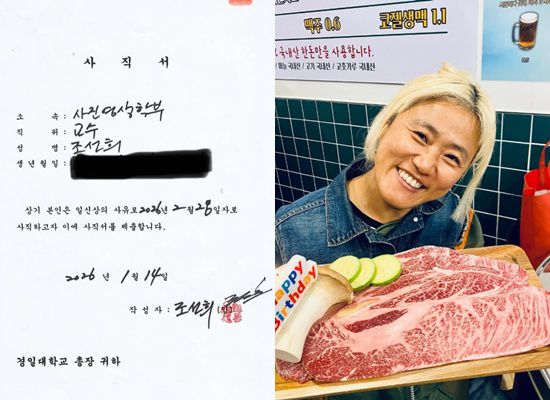 사 직 서
소 속 : 사진영상학부
직 위 : 교수
성 명 : 조선희
생년월일 :
상기 본인은 일신상의 사유로 2026년 2월 28일자로
사직하고자 이에 사직서를 제출합니다.
2026 년 1월 14일
작 성 자 : 조선희 (인)
경일대학교 총장 귀하
맥주 0.6 코젤생맥 1.1
국내산 한돈만을 사용합니다.
고기 국내산 / 고춧가루 국내산
Happy
Birthday